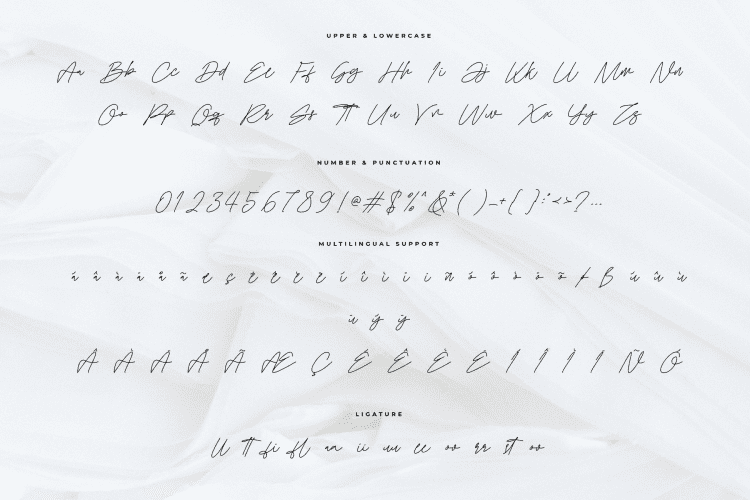 UPPER & LOWERCASE
Aa Bb Cc Dd Ee Ff Gg Hh Ii Jj Kk Ll Mm Nn
Oo Pp Qq Rr Ss Tt Uu Vv Ww Xx Yy Zz
NUMBER & PUNCTUATION
0123456789!@#$%^&*()_+{}:"<>?...
MULTILINGUAL SUPPORT
á â à å ã æ ç é ê è ë í î ì ï ñ ó ô ò ö õ ø ß ú û ù
ü ý ÿ
Á À Â Å Ã Æ Ç É Ê È Ë Í Î Ì Ï Ñ Ó
LIGATURE
ll tt fi fl aa ii uu ee oo rr st ov